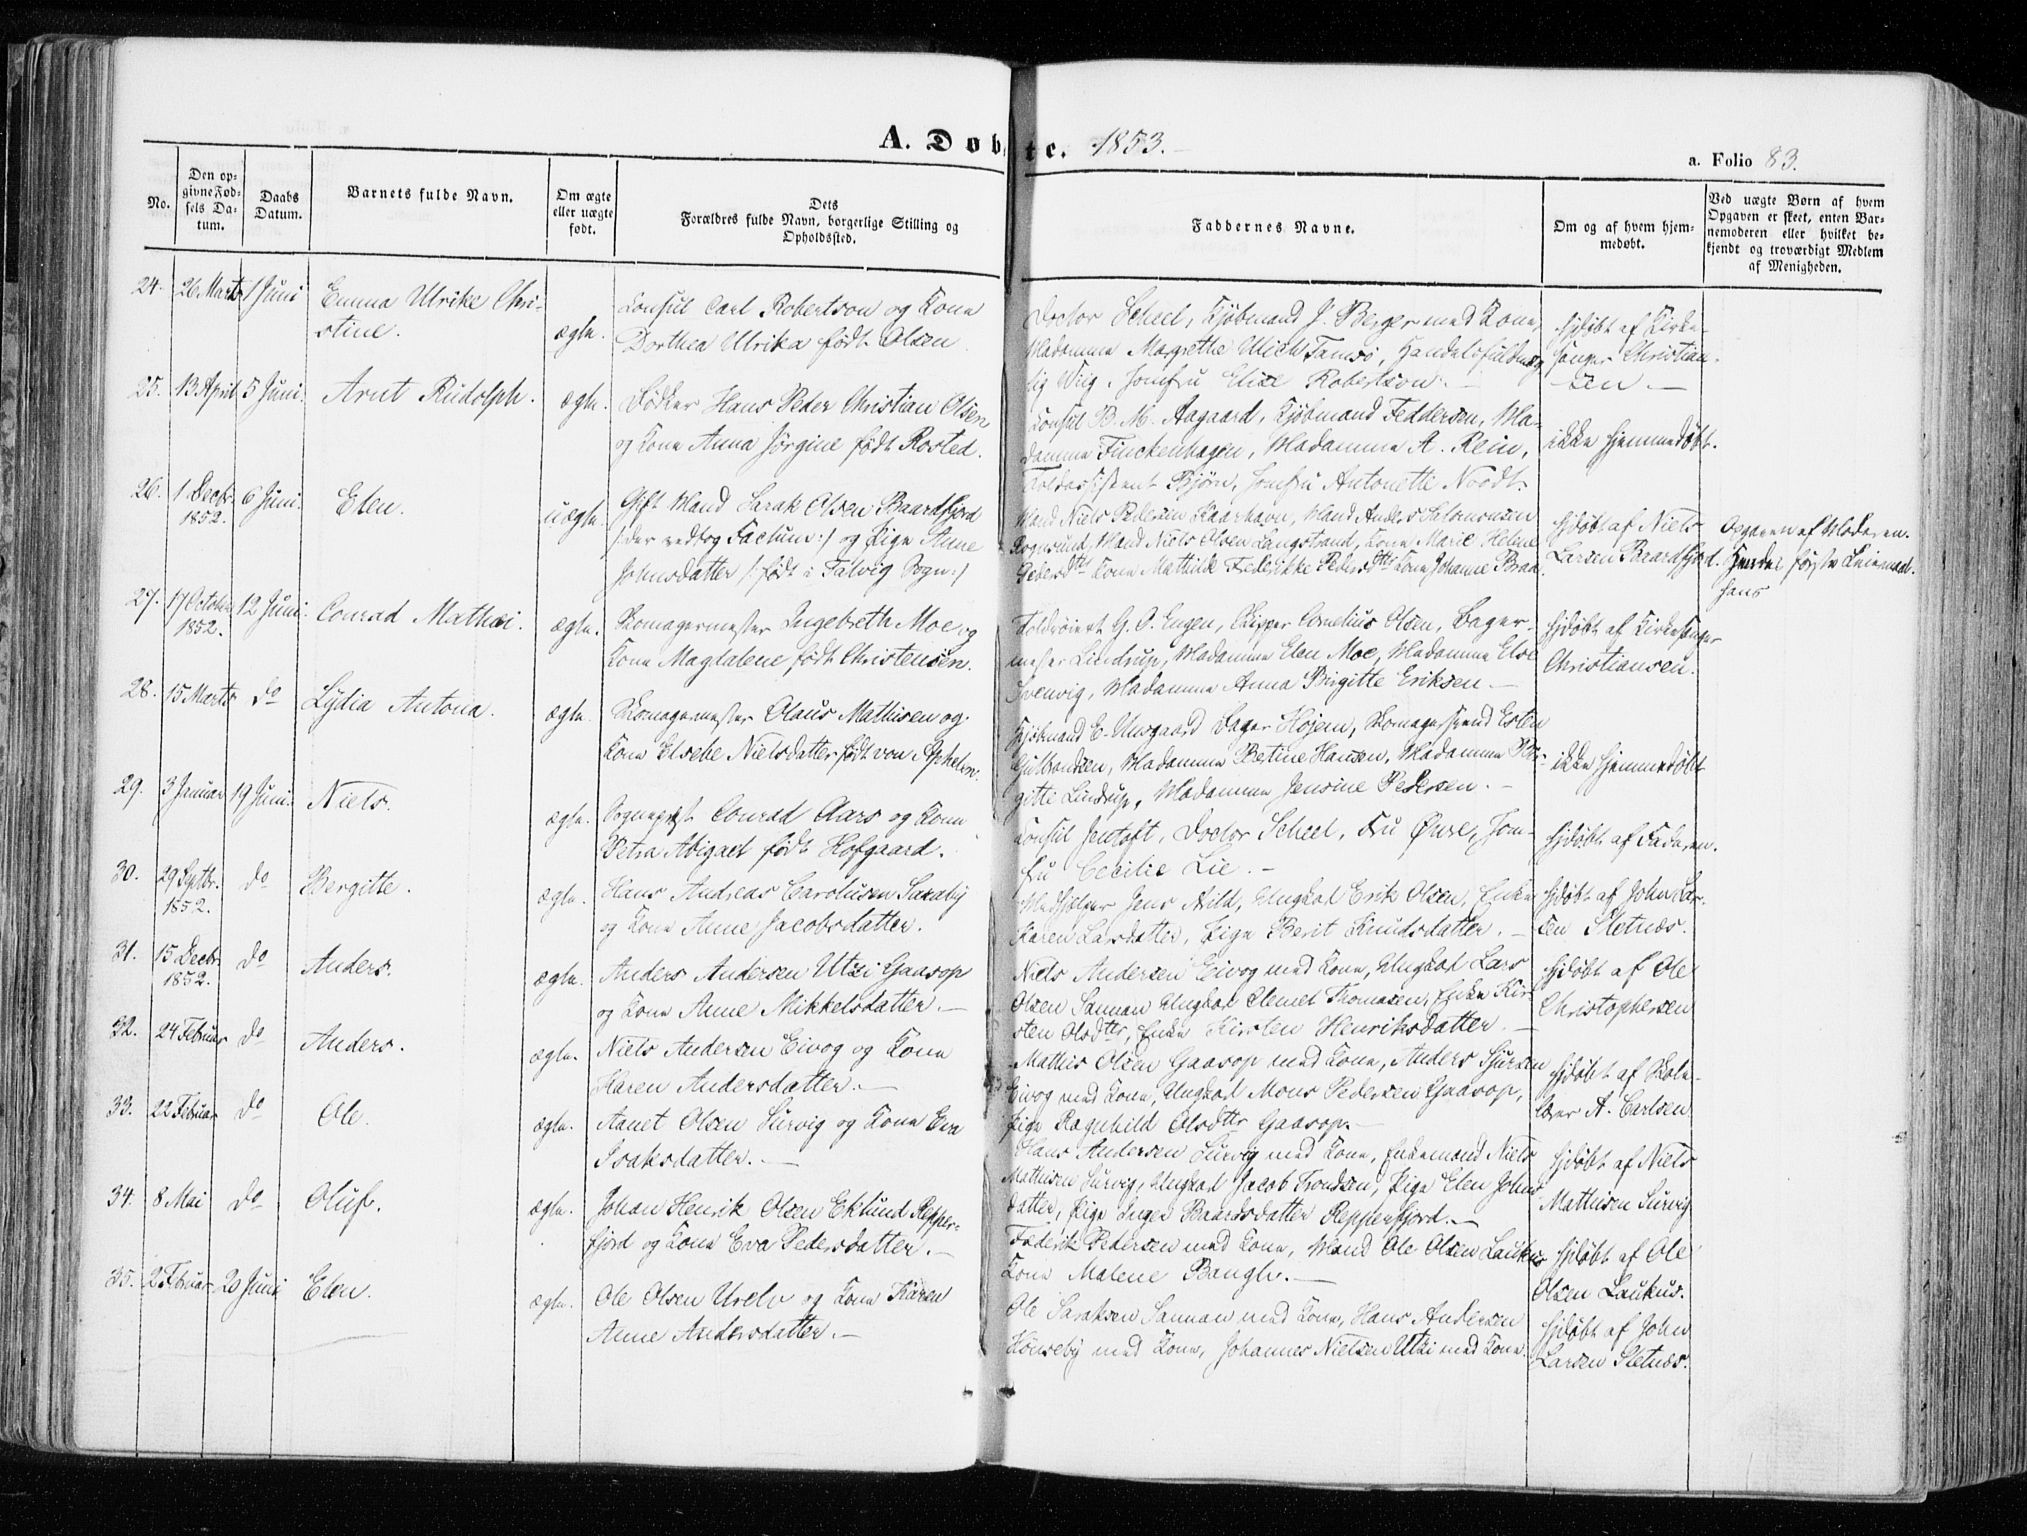 A. Døbte. 1853.
a. Folio 83.
No.
Den opgivne Fødsels Datum.
Daabs Datum.
Barnets fulde Navn.
Om ægte eller uægte født.
Dets Forældres fulde Navn, borgerlige Stilling og Opholdssted.
Faddernes Navne.
Om og af hvem hjemmedøbt.
Ved uægte Børn af hvem Opgaven er skeet, enten Barnemoderen eller hvilket bekjendt og troværdigt Medlem af Menigheden.
24. 26 Marts 1 Juni Emma Ulrike Chri-
stine.
ægte.
Consul Carl Robertson og Kone
Dorthea Ulrika født Olsen
Doctor Scheel, Kjøbmand J. Berger med Kone,
Madamme Magrethe Ulich Tamsø,
Wiig. Jomfru Elise Robertson.
hjdøbt af Kirke-
sanger Christian-
sen
25. 13 April 5 Juni. Arnt Rudolph. ægte.
Bødker Hans Peder Christian Olsen
og Kone Anna Jørgine født Rosted.
Consul B. M. Aagaard, Kjøbmand Feddersen, Ma-
damme Finckenhagen, Madamme A. Rein,
Toldassistent Bjørn, Jomfru Antonette Noodt.
ikke hjemmedøbt.
26. 1 Decbr 1852. 6 Juni. Elen. uægte.
Gift Mand Sarak Olsen Baardfjord
/: der vedtog Factum :/ og Pige Anne
Johnsdatter /: født i Talvig Sogn :/
Mand Niels Pedersen Kaarhavn, Mand Anders Salomonsen
Rognsund, Mand Niels Olsen Langstrand, Kone Marie Helene
Pedersdtr Kone Mathilde Fredrikke Pedersdtr Kone Johanne
hjdøbt af Niels
Larsen Baardfjord.
Opgaven af Moderen.
Hendes første Leiermaal.
hans
27. 17 October 1852. 12 Juni. Conrad Mathæi. ægte.
Skomagermester Ingebreth Moe og
Kone Magdalene født Christensen.
Toldroiert G. O. Engen, Skipper Cornelius Olsen, Bager-
mester Lindrup, Madamme Elen Moe, Madamme Else
Svenvig, Madamme Anna Birgitte Eriksen.
hjdøbt af Kirkesanger
Christiansen.
28. 15 Marts do Lydia Antona. ægte.
Skomagermester Olaus Mathisen og
Kone Elsebe Nielsdatter født von Aphelen.
Kjøbmand E. Unsgaard Bager Højem, Skomagersvend Esten
Gulbrandsen, Madamme Betine Hansen, Madamme Bir-
gitte Lindrup, Madamme Jensine Pedersen.
ikke hjemmedøbt
29. 3 Januar 19 Juni. Niels. ægte.
Sognepræst Conrad Aars og Kone
Petra Abigael født Hofgaard.
Consul Jentoft, Doctor Scheel, Fru Øwre, Jom-
fru Cecilie Lie.
hjdøbt af Faderen.
30. 29 Septbr. 1852. do Bergitte. ægte.
Hans Andreas Carolusen Saraby
og Kone Anne Jacobsdatter.
Medhjelper Jens Hild, Ungkal Erik Olsen, Enke
Karen Larsdatter, Pige Berit Knudsdatter.
hjdøbt af John Lar-
sen Sletnæs.
31. 15 Decbr 1852. do Anders. ægte.
Anders Andersen Utsi Gaasop
og Kone Anne Mikkelsdatter.
Niels Andersen Eivog med Kone, Ungkal Lars
Olsen Sannan Ungkal Clemet Thomasen, Enke Kir-
sten Olsdtr, Enke Kirsten Henriksdatter.
hjdøbt af Ole
Christophersen
32. 24 Februar do Anders. ægte.
Niels Andersen Eivog og Kone
Karen Andersdatter.
Mathis Olsen Gaasop med Kone, Anders Sjursen
Eivog med Kone, Ungkal Mons Pedersen Gaasop,
Pige Ragnhild Olsdtr Gaasop.
hjdøbt af Skole-
lærer A. Carlsen
33. 22 Februar do Ole. ægte.
Aanet Olsen Survig og Kone Eva
Isaksdatter.
Hans Andersen Survig med Kone, Enkemand Niels
Mathisen Survig, Ungkal Jacob Trondsen, Pige Elen Johns
datter, Pige Inger Baardsdatter Repperfjord.
hjdøbt af Niels
Mathisen Survig
34. 8 Mai do Oluf. ægte.
Johan Henrik Olsen Eklund Repper-
fjord og Kone Eva Pedersdatter.
Fæderik Pedersen med Kone, Mand Ole Olsen Laukus
Kone Malene Bangh.
hjdøbt af Ole
Olsen Laukus.
35. 2 Februar 20 Juni Elen. ægte.
Ole Olsen Urelv og Kone Karen
Anne Andersdatter.
Ole Saraksen Sannan med Kone, Hans Andersen
Hønseby med Kone, Johannes Nielsen Utsi med Kone.
hjdøbt af John
Larsen Sletnæs.